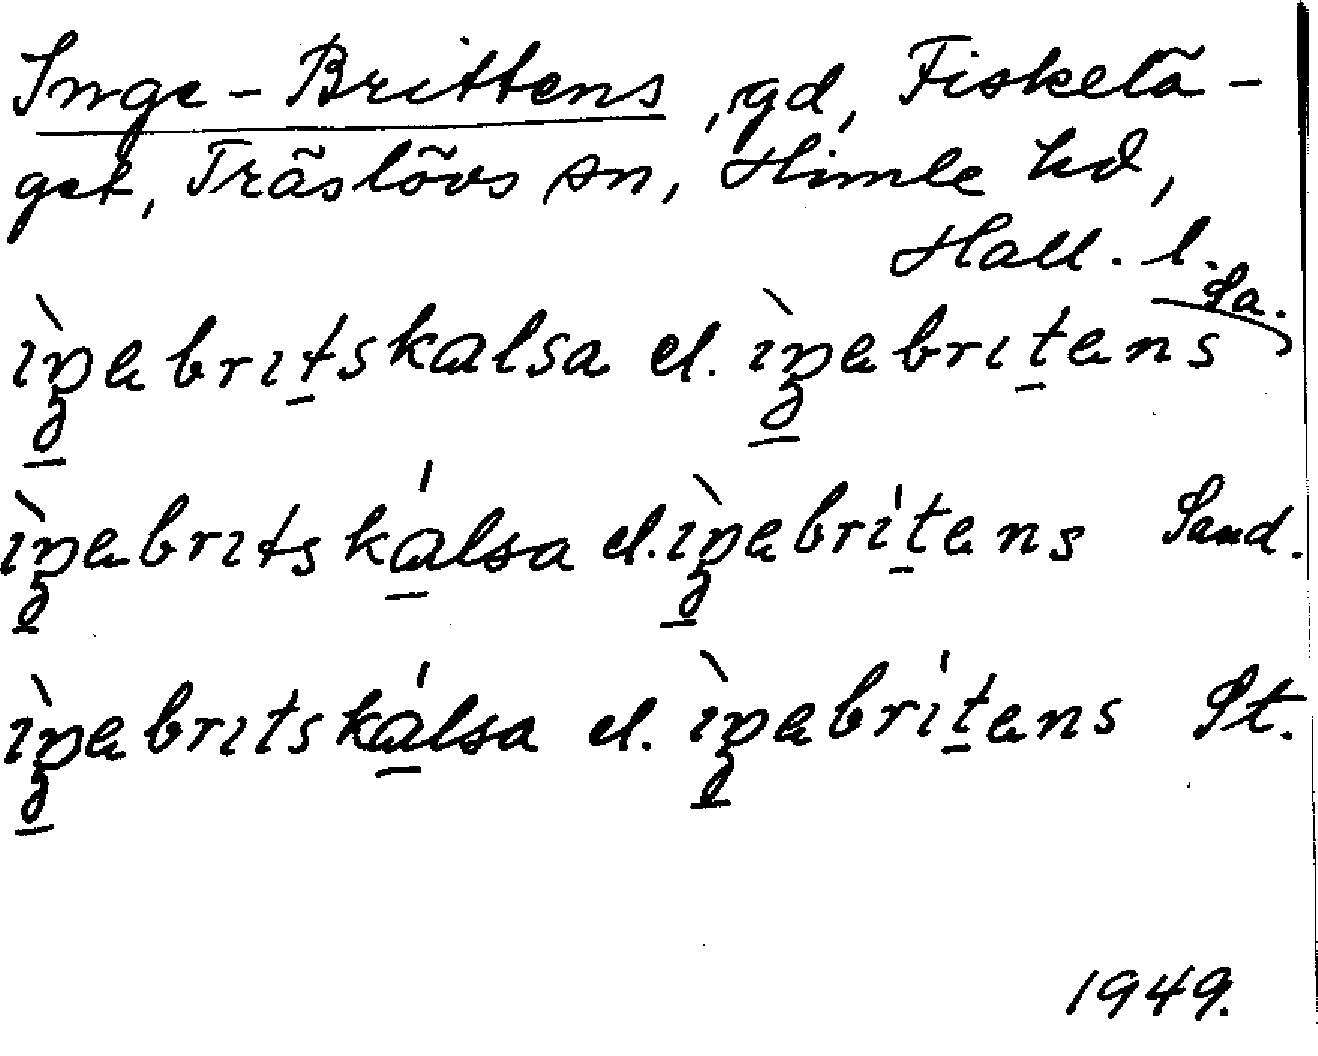 Inge-Brittens, gd, Fiskelä-
get, Träslövs sn, Himle hd,
Hall. l.
ìŋabrit̲skalsa el. ìŋabrit̲ans Sa.
ìŋabritská̲lsa el. ìŋabrít̲ans Sand.
ìŋabritská̲lsa el. ìŋabrít̲ans St.
1949.